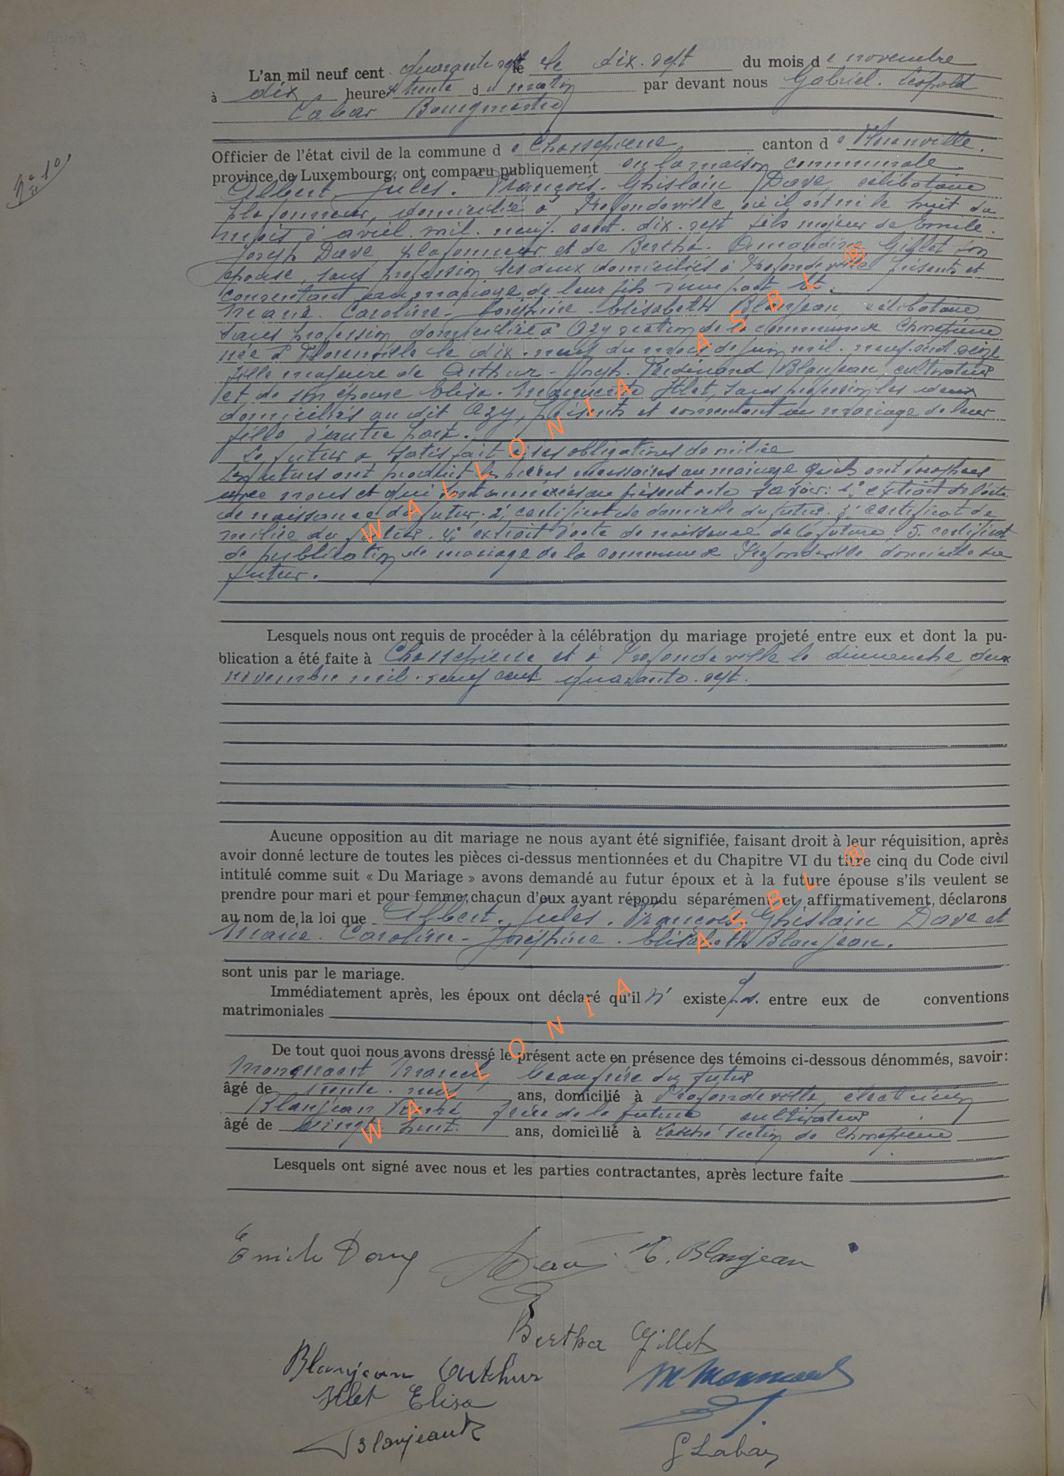 L'an mil neuf cent quarante sept le dix-sept du mois de novembre
à dix heures trente du matin par devant nous Gabriel. Léopold
Labar Bourgmestre
Officier de l'état civil de la commune de Chassepierre canton de Florenville.
province de Luxembourg, ont comparu publiquement en la maison communale
Albert. Jules. François. Ghislain Dave, célibataire
plafonneur, domicilié à Profondeville où il est né le huit du
mois d'avril mil. neuf. cent. dix. sept fils majeur de Emile.
Joseph Dave plafonneur et de Bertha. Amandine Gillet son
épouse, sans profession les deux domiciliés à Profondeville présents et
consentant au mariage de leur fils d'une part et.
Marie. Caroline. Joséphine. Elisabeth Blanjean célibataire,
sans profession domiciliée à Azy section de la commune de Chassepierre
née à Florenville le dix. neuf du mois de juin mil. neuf cent seize
fille majeure de Arthur. Joseph. Ferdinand Blanjean cultivateur
et de son épouse Elisa. Ilet, sans profession, les deux
domiciliés au dit Azy, présents et consentant au mariage de leur
fille d'autre part.
Le futur a satisfait à ses obligations de milice
Les futurs ont produit les pièces nécessaires au mariage qu'ils ont
avec nous et qui sont annexées au présent acte savoir: 1° extrait de l'acte
de naissance du futur. 2, certificat de domicile du futur. 3, certificat de
milice du futur. 4, extrait d'acte de naissance de la future, 5. certificat
de publication de mariage de la commune de Profondeville domicile du
futur.
Lesquels nous ont requis de procéder à la célébration du mariage projeté entre eux et dont la pu-
blication a été faite à Chassepierre et à Profondeville le dimanche deux
novembre mil. neuf cent quarante. sept.
Aucune opposition au dit mariage ne nous ayant été signifiée, faisant droit à leur réquisition, après
avoir donné lecture de toutes les pièces ci-dessus mentionnées et du Chapitre VI du titre cinq du Code civil
intitulé comme suit « Du Mariage » avons demandé au futur époux et à la future épouse s'ils veulent se
prendre pour mari et pour femme, chacun d'eux ayant répondu séparément et affirmativement, déclarons
au nom de la loi que Albert. Jules. François Ghislain Dave et
Marie. Caroline. Joséphine. Elisabeth Blanjean.
sont unis par le mariage.
Immédiatement après, les époux ont déclaré qu'il n' existe pas. entre eux de conventions
matrimoniales
De tout quoi nous avons dressé le présent acte en présence des témoins ci-dessous dénommés, savoir:
Marcel, beau frère du futur
âgé de trente. neuf, ans, domicilié à Profondeville, électricien
Blanjean frère de la future cultivateur
âgé de vingt huit. ans, domicilié à section de Chassepierre
Lesquels ont signé avec nous et les parties contractantes, après lecture faite
Emile Dave Dave E. Blanjean
Bertha Gillet
Blanjean Arthur
Ilet Elisa
Blanjean
G Labar
WALLONIA ASBL ®
WALLONIA ASBL ®